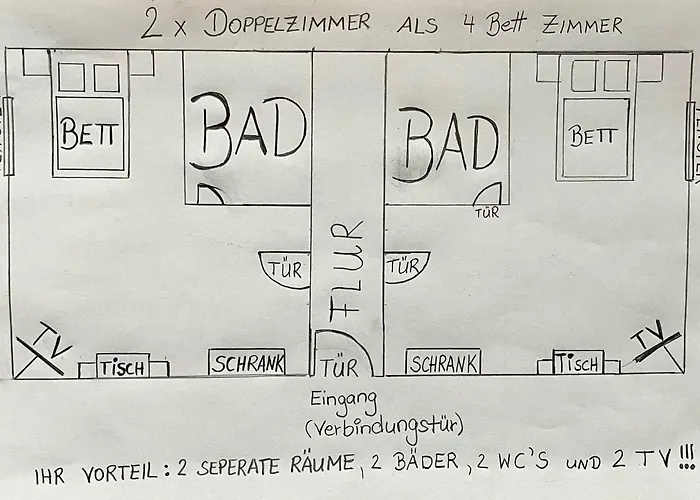 2 x DOPPELZIMMER ALS 4 Bett ZIMMER
BETT
BAD
BAD
BETT
TÜR
TÜR
TÜR
FLUR
TV
TISCH
SCHRANK
TÜR
SCHRANK
TISCH
TV
Eingang
(Verbindungstür)
IHR VORTEIL: 2 SEPERATE RÄUME, 2 BÄDER, 2 WC'S UND 2 TV!!!